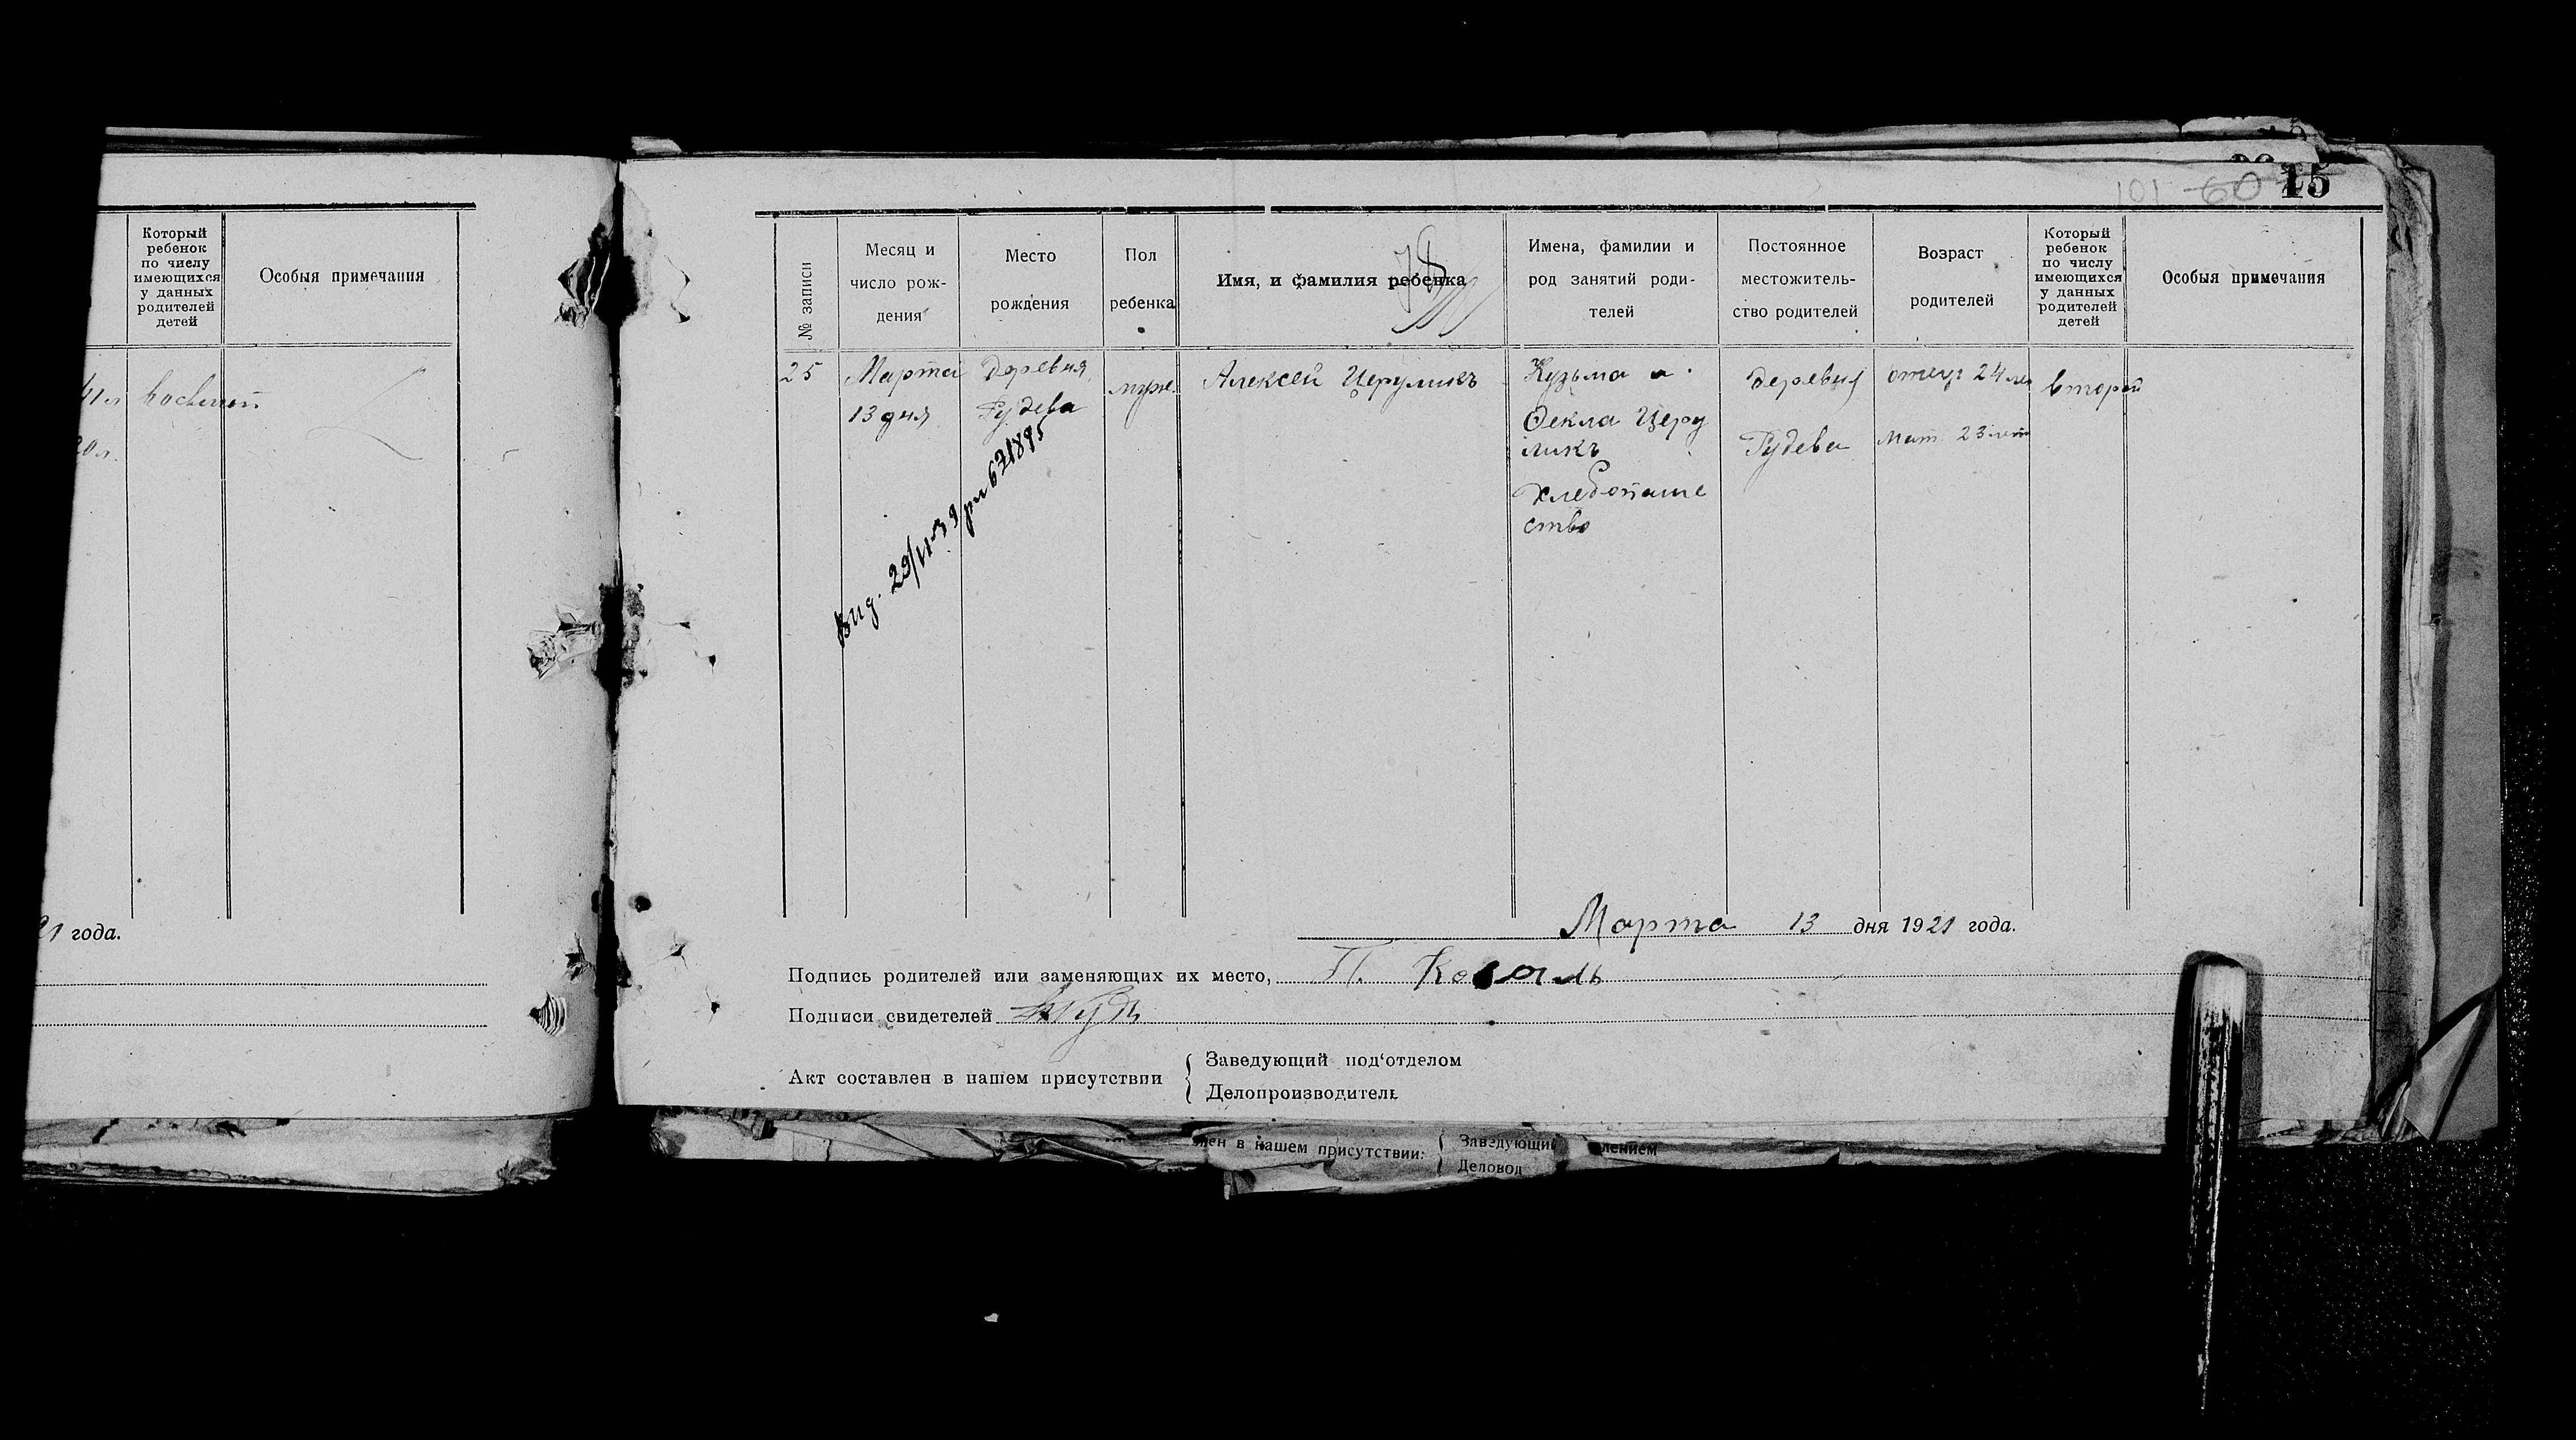 Который
ребенок
по числу
имеющихся
у данных
родителей
детей
Особыя примечания
41 л
восьмой
30 л.
21 года.
101 60 15
78
№ записи
Месяц и
число рож-
дения
Место
рождения
Пол
ребенка
Имя, и фамилия ребенка
Имена, фамилии и
род занятий роди-
телей
Постоянное
местожитель-
ство родителей
Возраст
родителей
Который
ребенок
по числу
имеющихся
у данных
родителей
детей
Особыя примечания
25
Марта
13 дня
Деревня
Гудева
муж.
Алексей Церуликъ
Кузьма и
Фекла Церу
ликъ
Хлебопаше
ство
деревня
Гудева
отец 24 лет
Мат. 23 лет
второй
Вид. 29/11-39 рп 671895
Марта 13 дня 1921 года.
Подпись родителей или заменяющих их место, П. Коваль
Подписи свидетелей
Акт составлен в нашем присутствии
Заведующий под'отделом
Делопроизводитель
ен в нашем присутствии:
Заведующи лением
Деловод